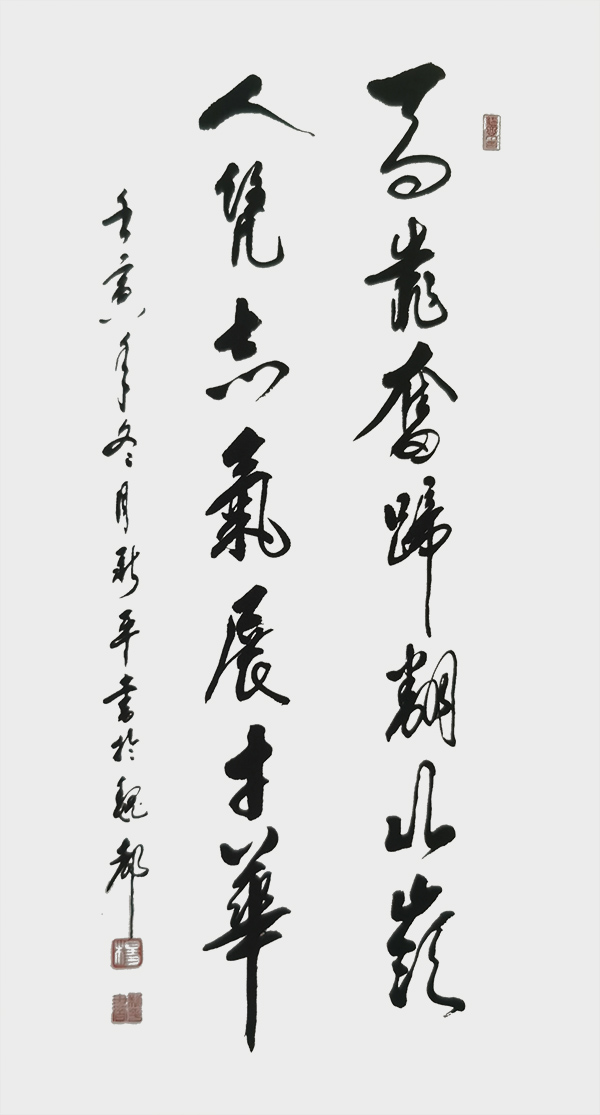 馬靠奮蹄翻山嶺
人凭志氣展才華
壬寅年冬月新平書於魏都